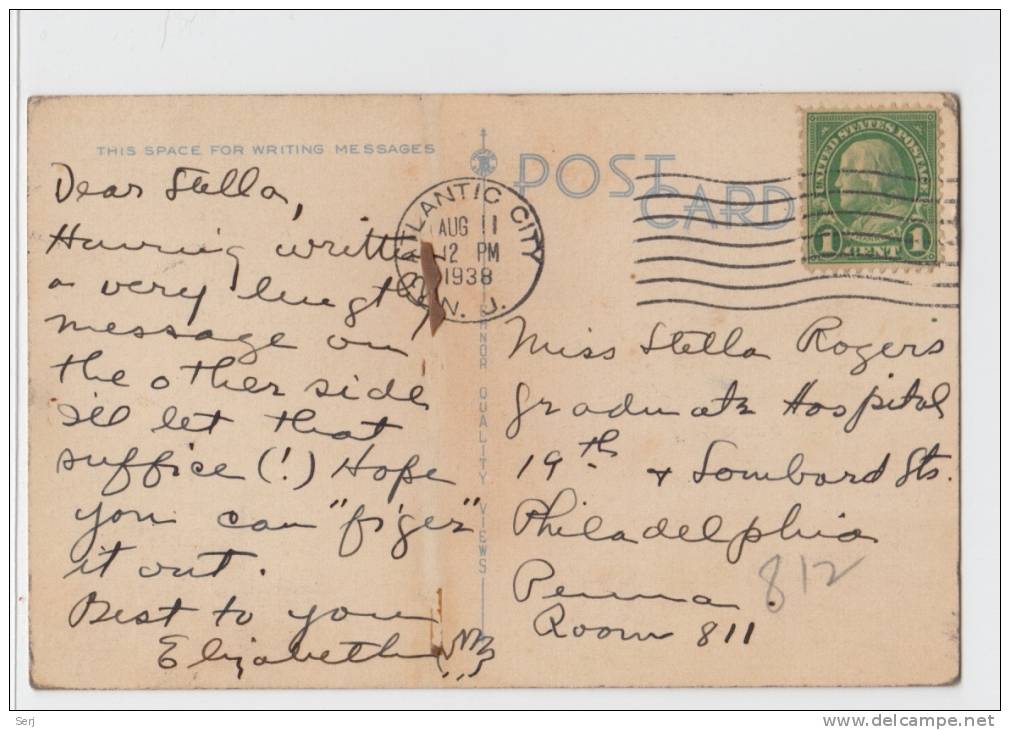 THIS SPACE FOR WRITING MESSAGES
Dear Stella,
Having written
a very lengthy
message on
the other side
I'll let that
suffice (!) Hope
you can "figer"
it out.
Best to you
Elizabeth
POST
CARD
ATLANTIC CITY
AUG 11
12 PM
1938
N. J.
UNITED STATES POSTAGE
1 CENT 1
QUALITY VIEWS
Miss Stella Rogers
Graduate Hospital
19th + Lombard Sts.
Philadelphia
Penna.
Room 811
812
Serj
www.delcampe.net